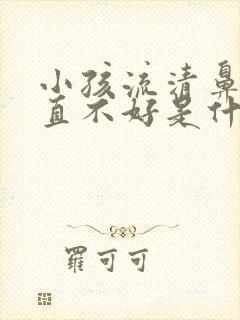 小孩流清鼻
直不好是什
罗可可